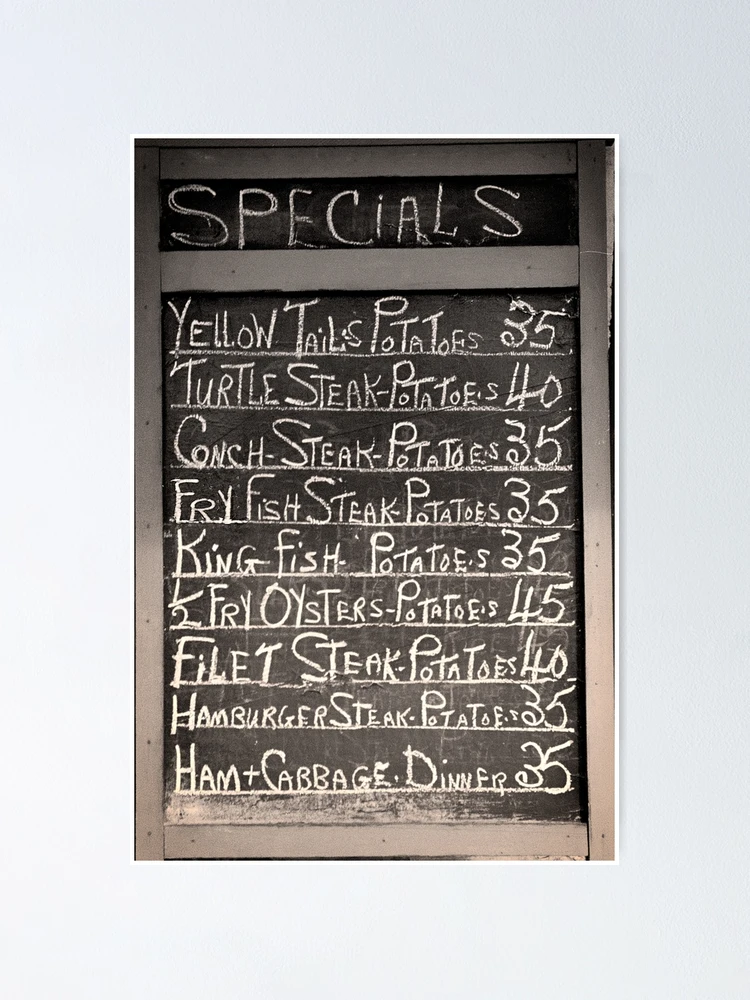 SPECiALS
YELLOW TAiL'S POTATOES 35
TURTLE STEAK-POTATOE'S 40
CONCH-STEAK-POTATOE'S 35
FRY FiSH STEAK-POTATOES 35
KiNG FiSH- POTATOE'S 35
1/2 FRY OYSTERS-POTATOE'S 45
FiLET STEAK-POTATOES 40
HAMBURGER STEAK-POTATOE'S 35
HAM+CABBAGE. DiNNER 35